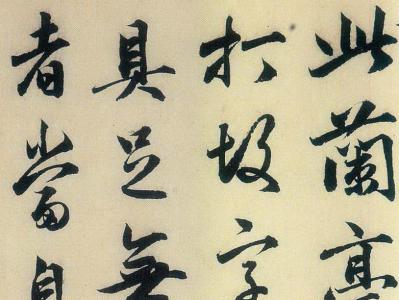 此蘭亭
打故字
具足無
者當自